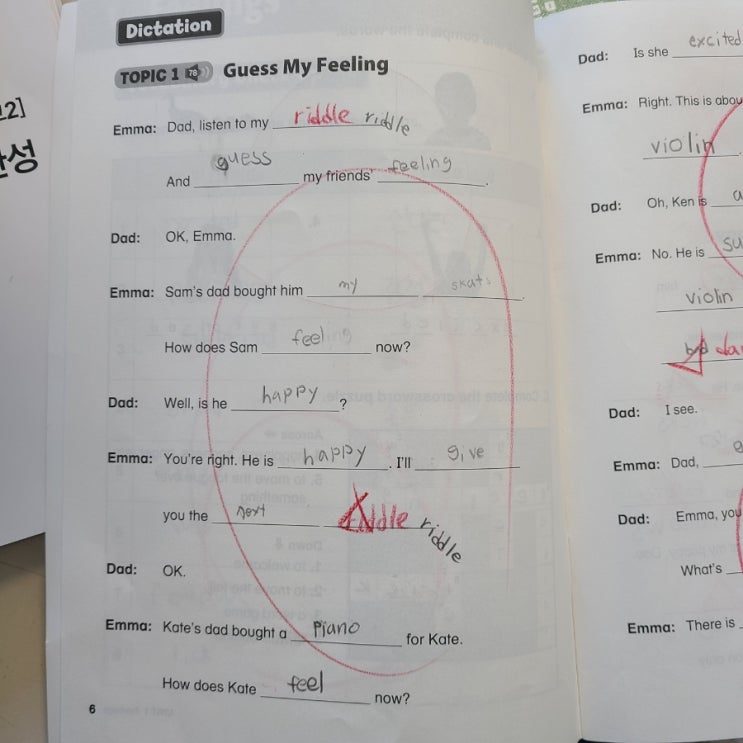 Dictation
TOPIC 1 78 Guess My Feeling
Emma: Dad, listen to my riddle riddle
And guess my friends' feeling.
Dad: OK, Emma.
Emma: Sam's dad bought him my skats.
How does Sam feeling now?
Dad: Well, is he happy?
Emma: You're right. He is happy. I'll give
you the next riddle riddle
Dad: OK.
Emma: Kate's dad bought a piano for Kate.
How does Kate feel now?
6
Dad: Is she excited
Emma: Right. This is abou
violin.
Dad: Oh, Ken is a
Emma: No. He is su
violin
Dad: I see.
Emma: Dad,
Dad: Emma, you
What's
Emma: There is
2]
성